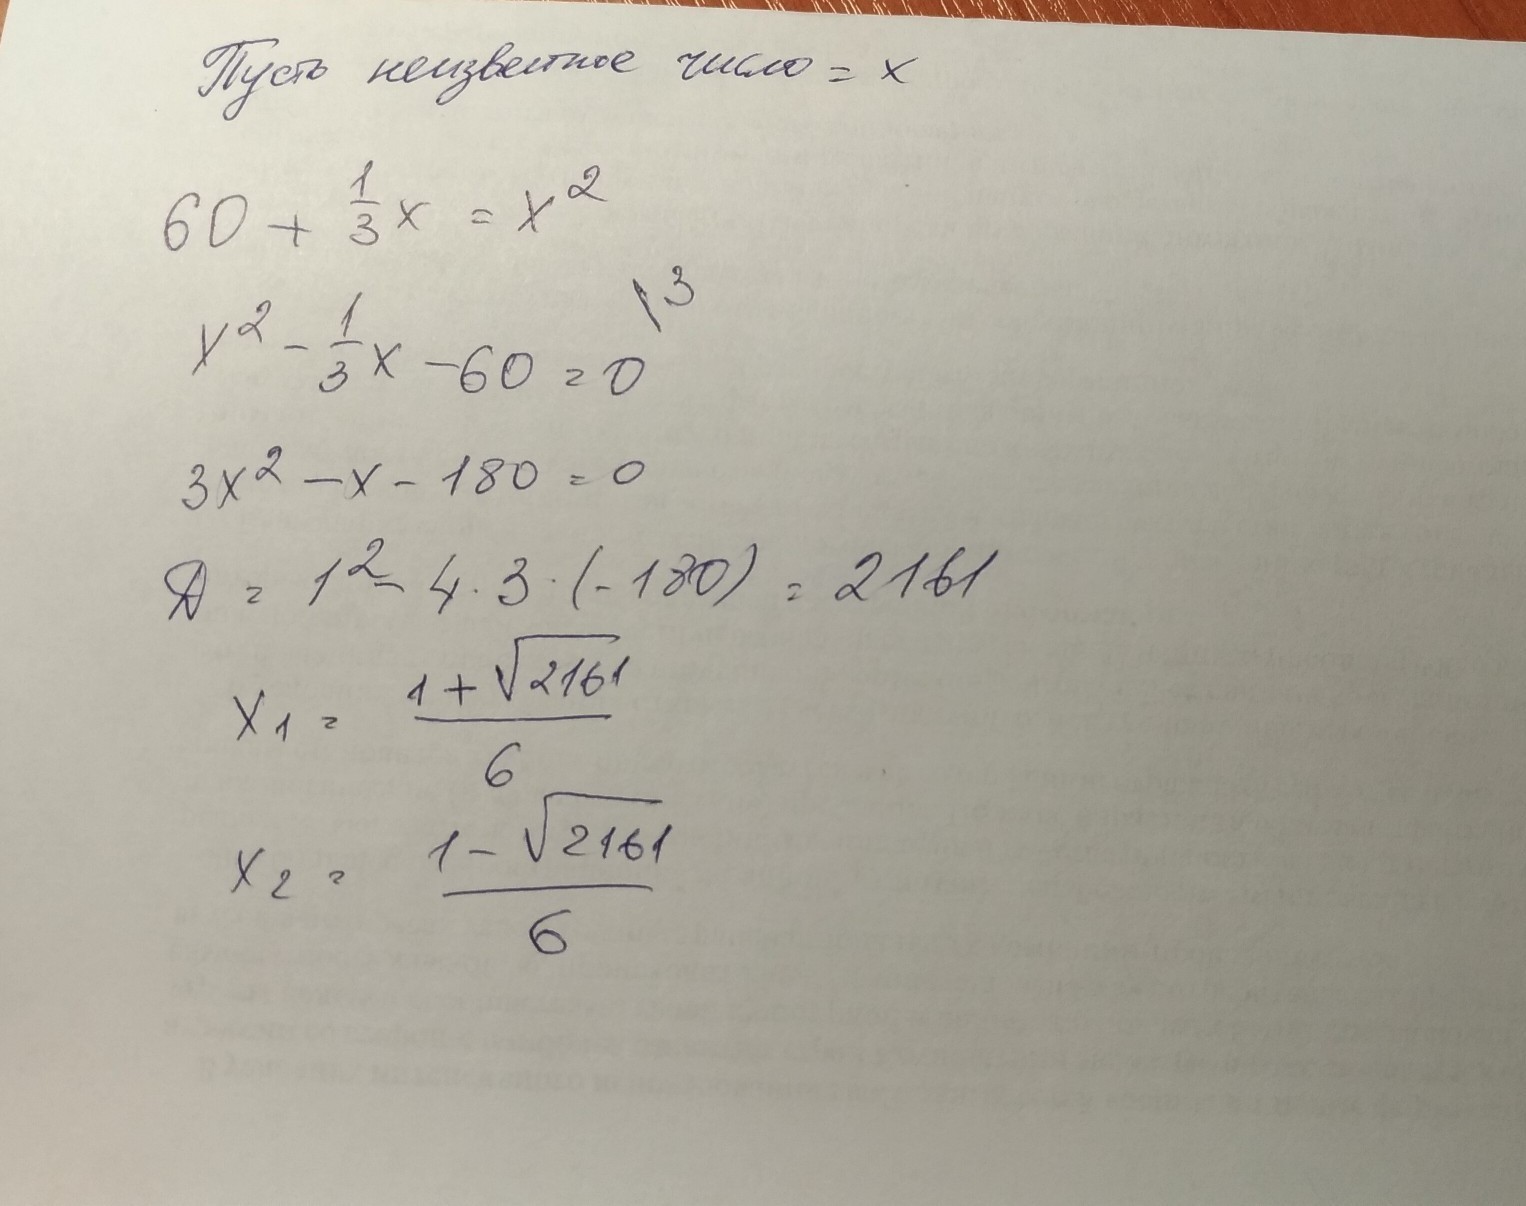 Пусть неизвестное число = x
60 + 1/3 x = x²
x² - 1/3 x - 60 = 0 |3
3x² - x - 180 = 0
D = 1² - 4 · 3 · (-180) = 2161
x₁ = (1 + √2161)/6
x₂ = (1 - √2161)/6